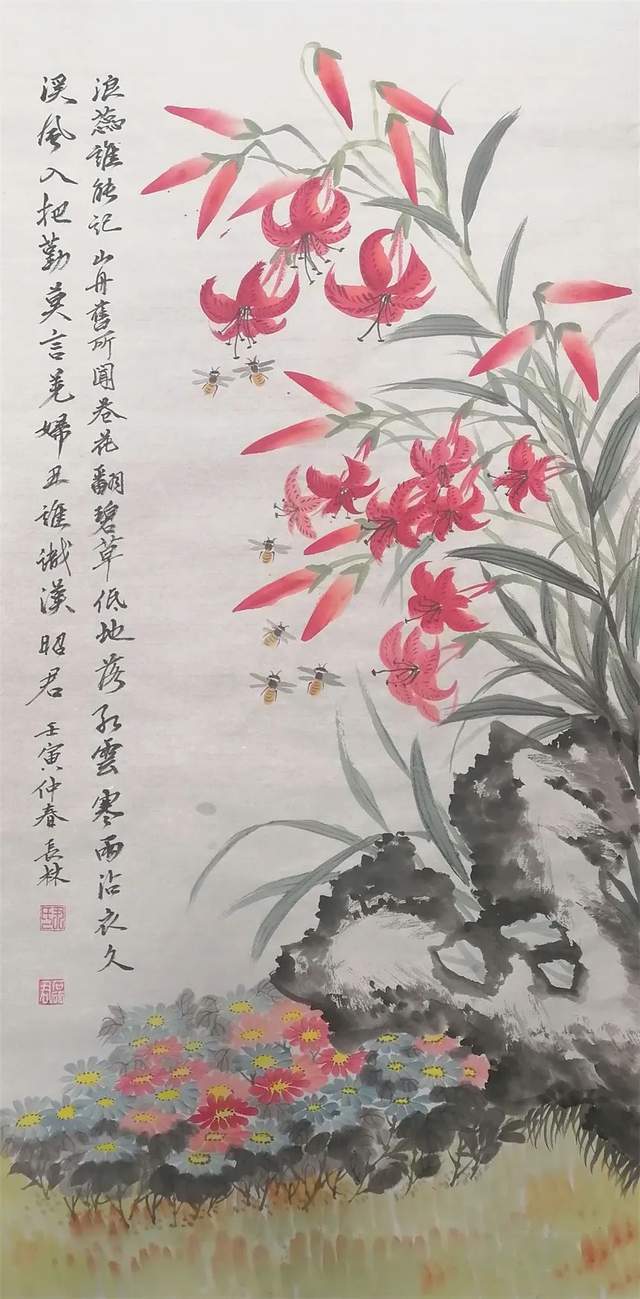 浪蕊誰能記山丹舊所聞卷花翻碧草低地落紅雲寒雨沾衣久
溪風入把勤莫言羌婦丑誰識漢昭君壬寅仲春長林